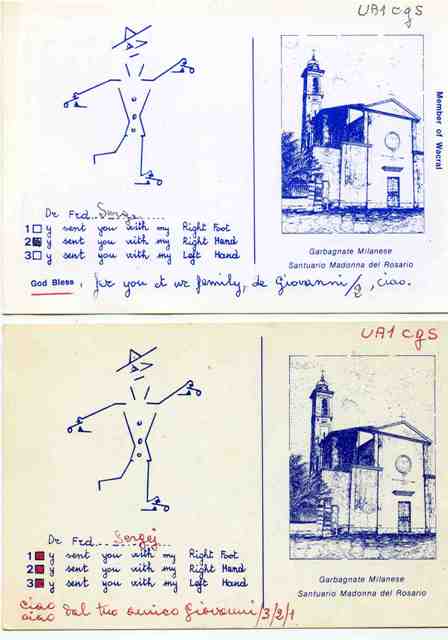 UA1cgs
Member of Wacral
Dr Frd. Sergej
1 y sent you with my Right Foot
2 y sent you with my Right Hand
3 y sent you with my Left Hand
Garbagnate Milanese
Santuario Madonna del Rosario
God Bless, for you et ur femily, de Giovanni/2, ciao.
UA1cgs
Dr Frd. Sergej
1 y sent you with my Right Foot
2 y sent you with my Right Hand
3 y sent you with my Left Hand
Garbagnate Milanese
Santuario Madonna del Rosario
ciao
ciao dal tuo amico Giovanni/3/2/1